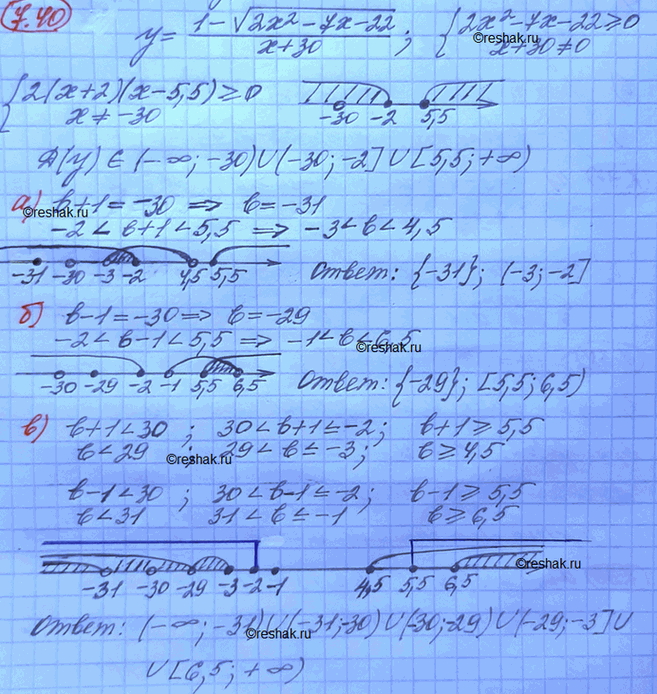 7.40
y = (1-√(2x²-7x-22))/(x+30) ; { 2x²-7x-22≥0
x+30≠0
©reshak.ru
{ 2(x+2)(x-5,5)≥0
x≠-30
-30 -2 5,5
Д(y) ∈ (-∞; -30)∪(-30; -2]∪[5,5; +∞)
а) b+1=-30 ⇒ b=-31
©reshak.ru
-2<b+1<5,5 ⇒ -3<b<4,5
-31 -30 -3 -2 4,5 5,5 Ответ: {-31}; (-3; -2]
б) b-1=-30 ⇒ b=-29
-2<b-1<5,5 ⇒ -1<b<6,5
©reshak.ru
-30 -29 -2 -1 5,5 6,5 Ответ: {-29}; [5,5; 6,5)
в) b+1<30 ; 30<b+1≤-2; b+1≥5,5
b<29 ; 29<b≤-3; b≥4,5
©reshak.ru
b-1<30 ; 30<b-1≤-2; b-1≥5,5
b<31 31<b≤-1 b≥6,5
©reshak.ru
-31 -30 -29 -3 -2 -1 4,5 5,5 6,5
Ответ: (-∞; -31)∪(-31;-30)∪(-30;-29)∪(-29;-3]∪
©reshak.ru
∪[6,5; +∞)